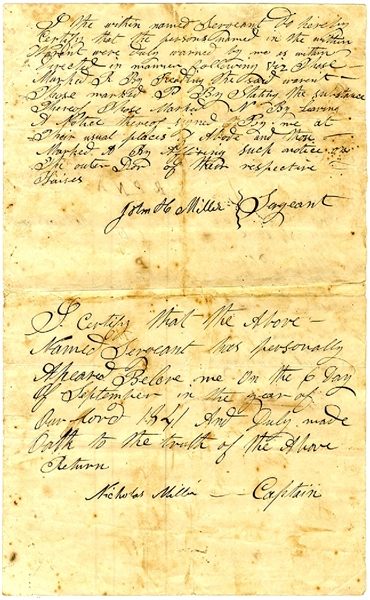 I the within named Sergeant Do hireby
Certify that the persons named in the within
Warant were Duly warned by me as within
Direcd in manner following viz Those
Marked R By Reading the said warent
Those marked S By Stating the substance
thereof Those Marked N By Leaving
A Notice thereof signed By me at
Their usual places of Abode and those
Marked A By Afixing such notice on
the outer Dor of their respective
Houises
John H Miller Sergeant
I Certify that the Above
Named Sergeant has personally
Apeared Before me on the 6 Day
Of September in the year of
Our Lord 1841 And Duly made
Oath to the truth of the Above
Return
Nicholas Miller Captain